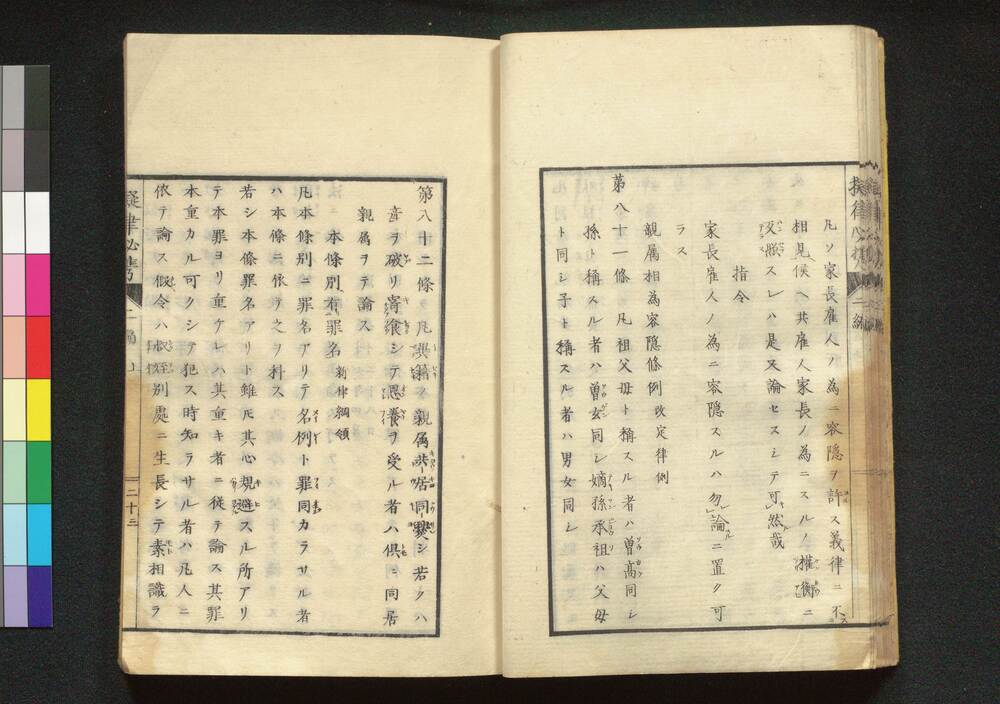 凡ソ家長雇人ノ為ニ容隠ヲ許ス義律ニ不
相見候ヘ共雇人家長ノ為ニスルノ権衡ニ
反照スレハ是又論セスシテ可然哉
指令
家長雇人ノ為ニ容隠スルハ勿論ニ置ク可
ラス
親属相為容隠條例 改定律例
第八十一條 凡祖父母ト稱スル者ハ曽高同シ
孫ト稱スル者ハ曽玄同シ嫡孫承祖ハ父母
ト同シ子ト稱スル者ハ男女同シ
第八十二條 凡異籍ノ親属共居同爨シ若クハ
産ヲ破リ寄飡シテ恩養ヲ受ル者ハ俱ニ同居
親属ヲテ論ス
本條別有罪名 新律綱領
凡本條別ニ罪名アリテ名例ト罪同カラサル者
ハ本條ニ依テ之ヲ科ス
若シ本條罪名アリト雖モ其心規避スル所アリ
テ本罪ヨリ重ケレハ其重キ者ニ従テ論ス其罪
本重カル可クシテ犯ス時知ラサル者ハ凡人ニ
依テ論ス假令ハ叔姪別處ニ生長シテ素相識ラ
二十三